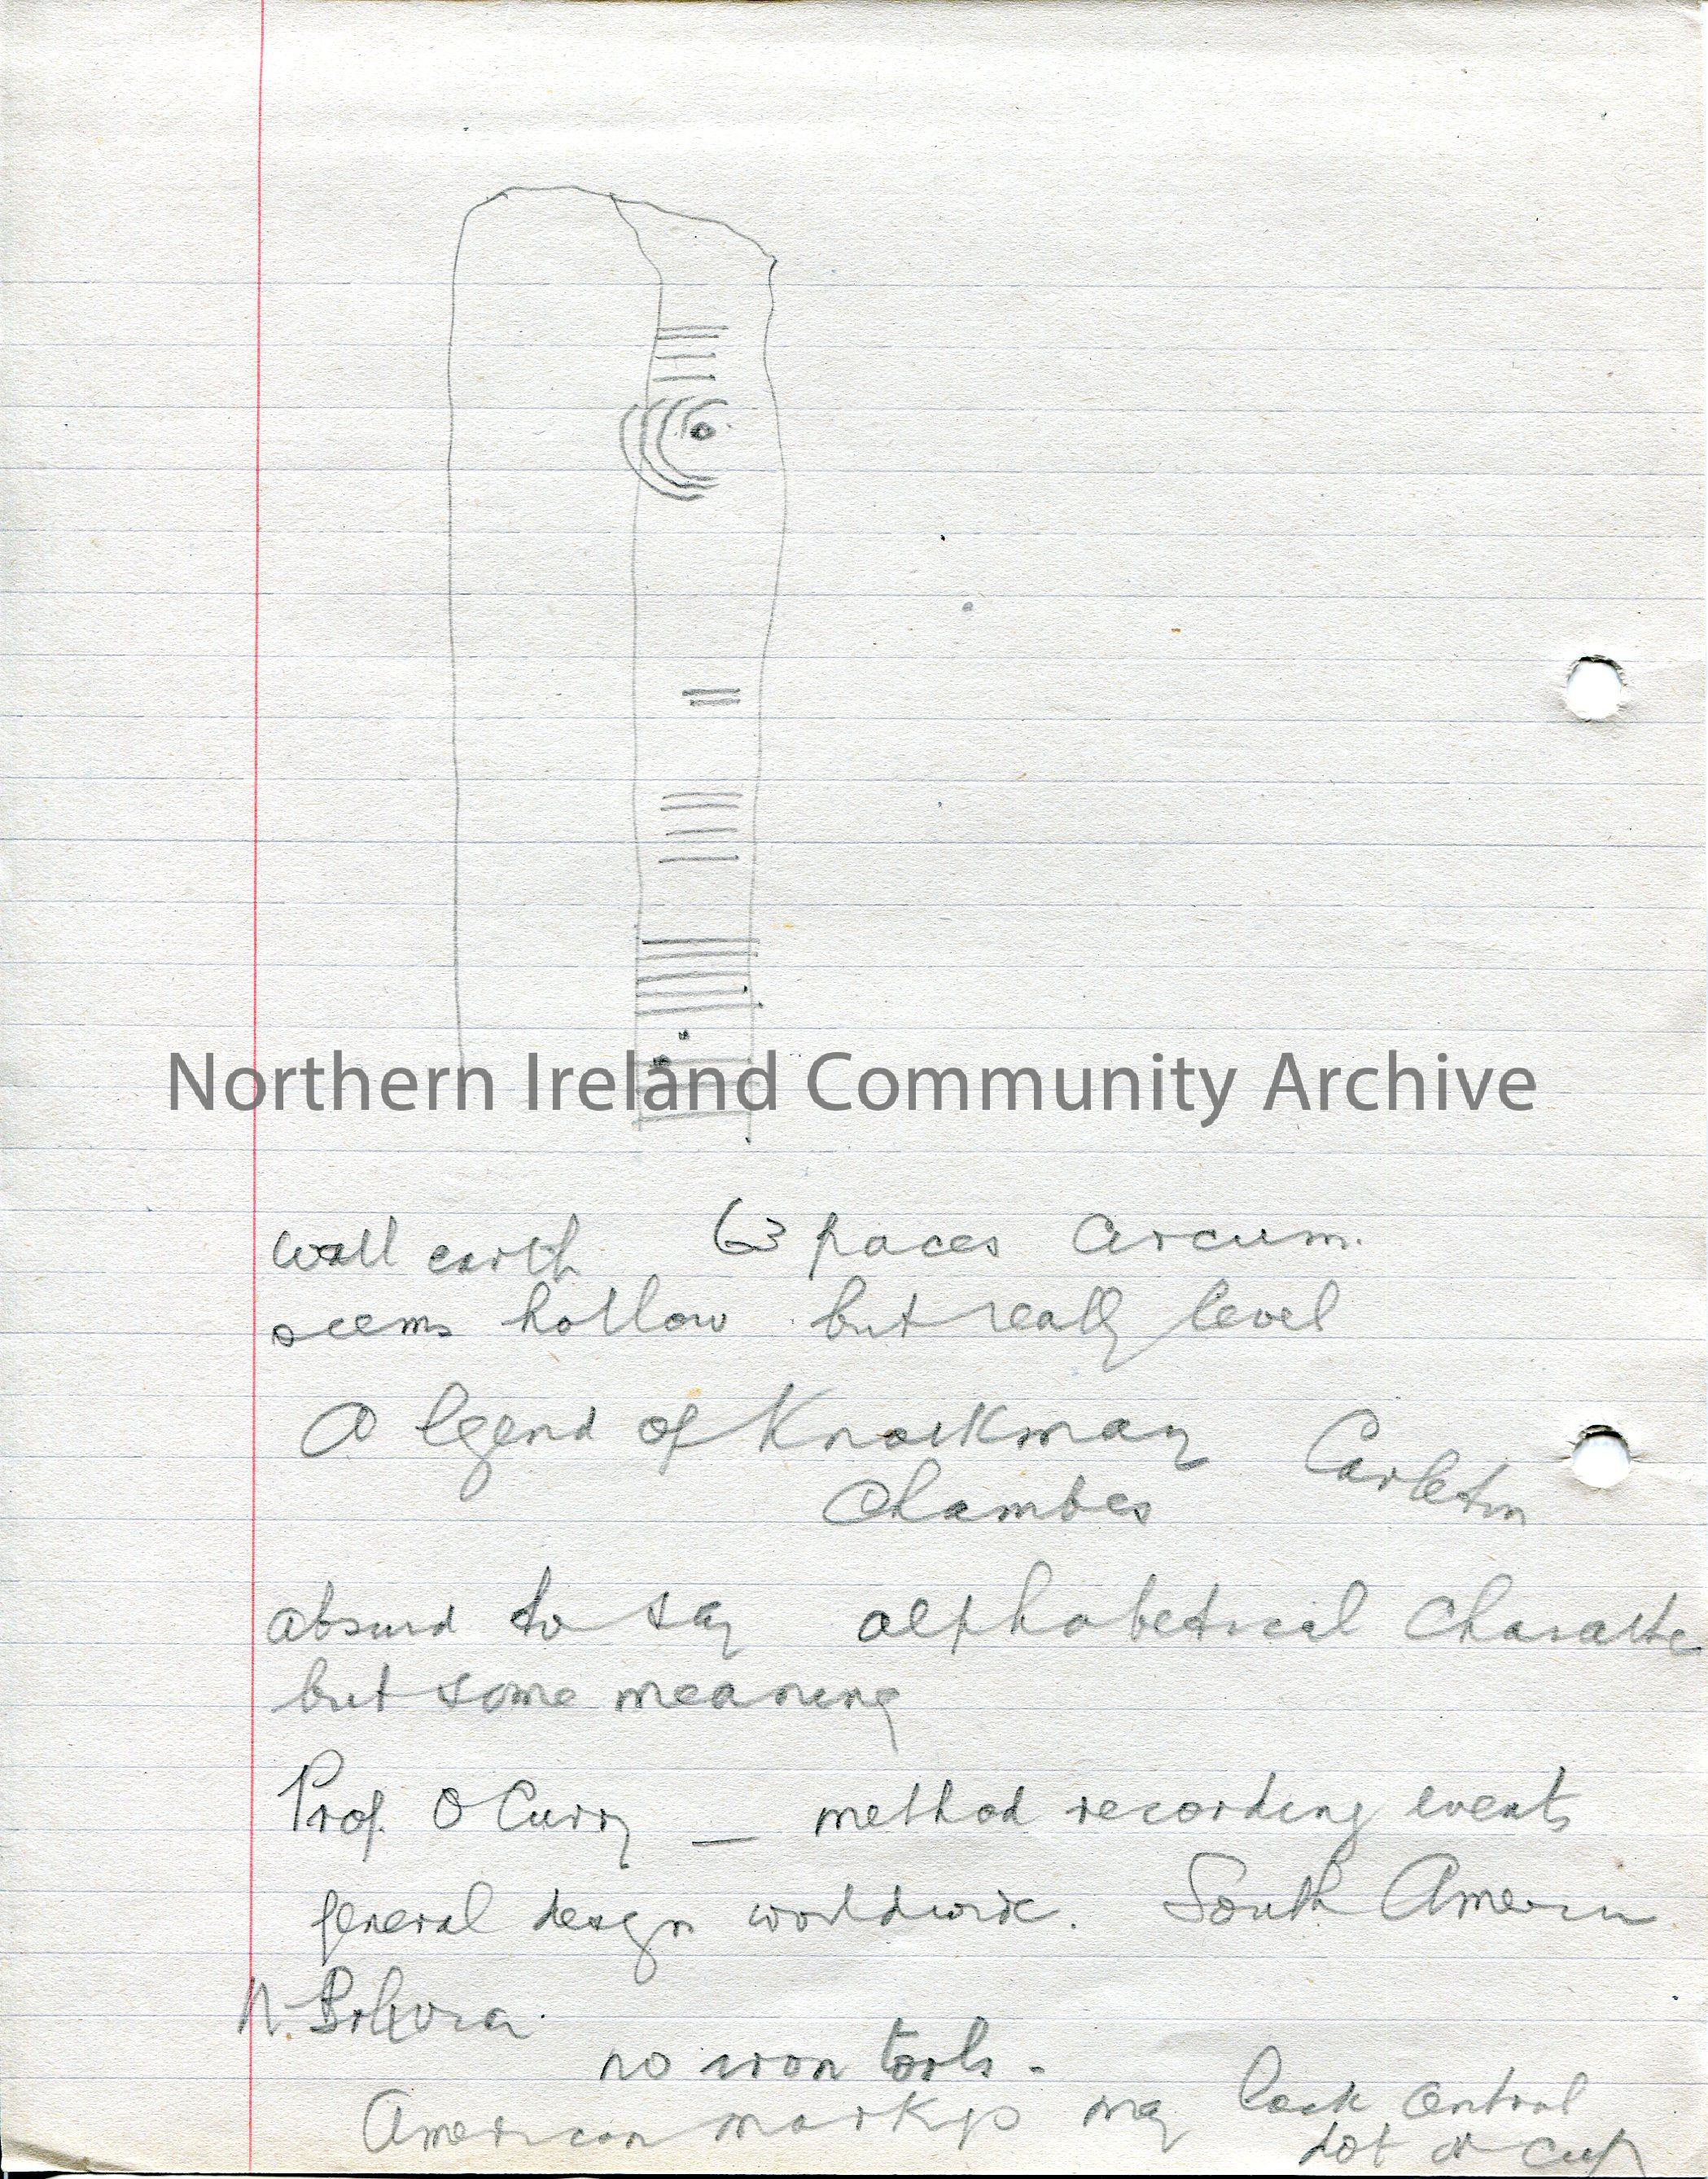 Northern Ireland Community Archive
Wall earth 63 paces circum.
seems hollow but really level
A legend of Knockmany Carleton
Chambers
absurd to say alphabetical Characte
but some meaning
Prof. O Curry — method recording events
general design worldwide. South America
N. Bolivia.
no iron tools -
American markgs may lack central
dot or cup